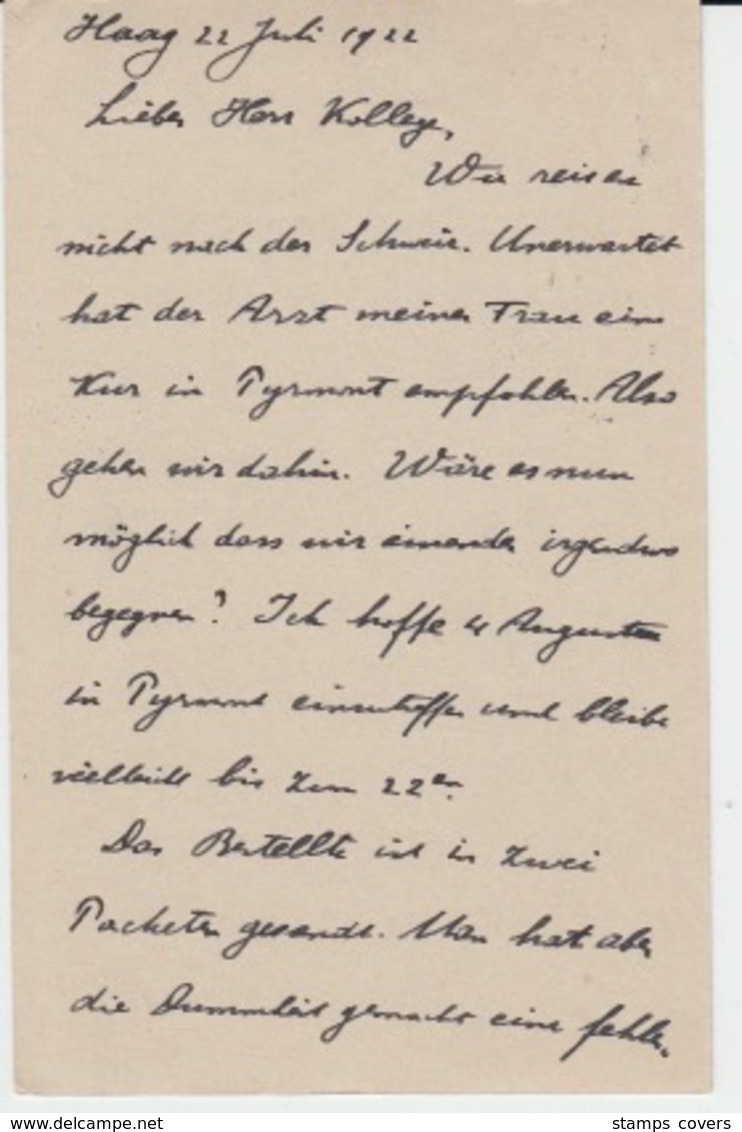 Haag 22 Juli 1922
Lieber Herr Kollege,
Wir reisen
nicht nach der Schweiz. Unerwartet
hat der Arzt meiner Frau eine
Kur in Pyrmont empfohlen. Also
gehen wir dahin. Wäre es nun
möglich dass wir einander irgendwo
begegnen? Ich hoffe 4 Augusten
in Pyrmont einzutreffen und bleibe
vielleicht bis zum 22en.
Das Bestellte ist in zwei
Packeten gesandt. Man hat aber
die Dummheit gemacht eine fehler
www.delcampe.net
stamps covers